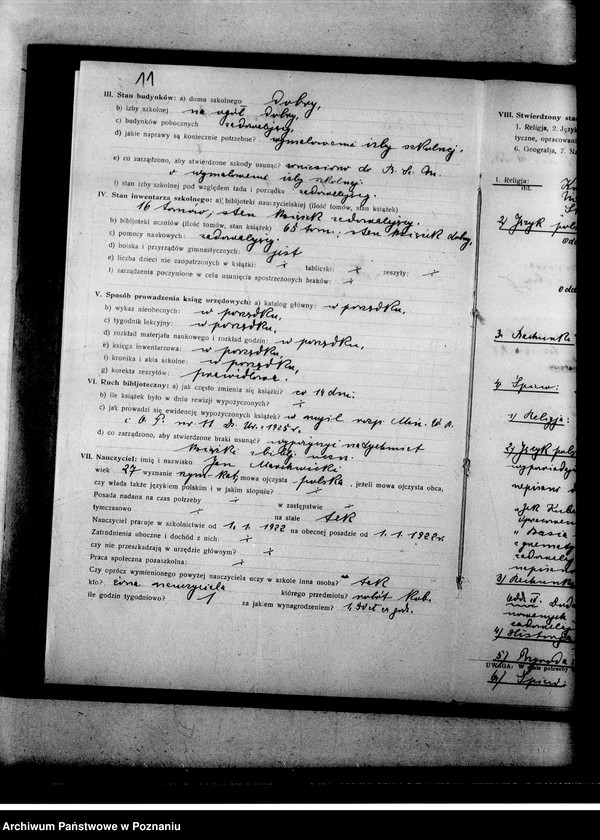 11
III. Stan budynków: a) domu szkolnego dobry,
b) izby szkolnej na ogół dobry,
c) budynków pobocznych zadowalający,
d) jakie naprawy są koniecznie potrzebne? wymalowanie izby szkolnej.
e) co zarządzono, aby stwierdzone szkody usunąć? wniesiono do
o wymalowanie izby szkolnej.
f) stan izby szkolnej pod względem ładu i porządku zadowalający.
IV. Stan inwentarza szkolnego: a) bibljoteki nauczycielskiej (ilość tomów, stan książek)
16 tomów, stan książek zadowalający.
b) bibljoteki uczniów (ilość tomów, stan książek) 65 tom., stan książek dobry,
c) pomocy naukowych: zadowalający.
d) boiska i przyrządów gimnastycznych: jest
e) liczba dzieci nie zaopatrzonych w książki: x tabliczki: x zeszyty: x
f) zarządzenia poczynione w celu usunięcia spostrzeżonych braków: x
V. Sposób prowadzenia ksiąg urzędowych: a) katalog główny: w porządku,
b) wykaz nieobecnych: w porządku,
c) tygodnik lekcyjny: w porządku,
d) rozkład materjału naukowego i rozkład godzin: w porządku,
e) księga inwentarzowa: w porządku,
f) kronika i akta szkolne: w porządku,
g) korekta zeszytów: prawidłowa.
VI. Ruch bibljoteczny: a) jak często zmienia się książki? co 14 dni.
b) ile książek było w dniu rewizji wypożyczonych? x
c) jak prowadzi się ewidencję wypożyczonych książek? w myśl rozp. Min. W. R.
i O. P. nr. 11 Dz. Urz. 1925 r.
d) co zarządzono, aby stwierdzone braki usunąć? natychmiast
książki z bibl. uczn.
VII. Nauczyciel: imię i nazwisko Jan
wiek 27 wyznanie rzym-kat, mowa ojczysta polska, jeżeli mowa ojczysta obca,
czy włada także językiem polskim i w jakim stopniu? x
Posada nadana na czas potrzeby x w zastępstwie x
tymczasowo x na stałe tak
Nauczyciel pracuje w szkolnictwie od 1. 1. 1922 na obecnej posadzie od 1. 1. 1922 r.
Zatrudnienia uboczne i dochód z nich: x
czy nie przeszkadzają w urzędzie głównym? x
Praca społeczna pozaszkolna: x
Czy oprócz wymienionego powyżej nauczyciela uczy w szkole inna osoba? tak
kto? żona nauczyciela którego przedmiotu? robót kob.
ile godzin tygodniowo? 1 za jakiem wynagrodzeniem?
VIII. Stwierdzony
1. Religja, 2. Język
tyczne, opracowani
6. Geografja, 7. Na
1. Religja:
2) Język pols
3. Rachunki
4. Śpiew:
1) Religja:
2) Język pols
3) Rachunki
4) Historja
5) Przyroda
UWAGA: W razie potrzeby
6) Śpiew:
Archiwum Państwowe w Poznaniu